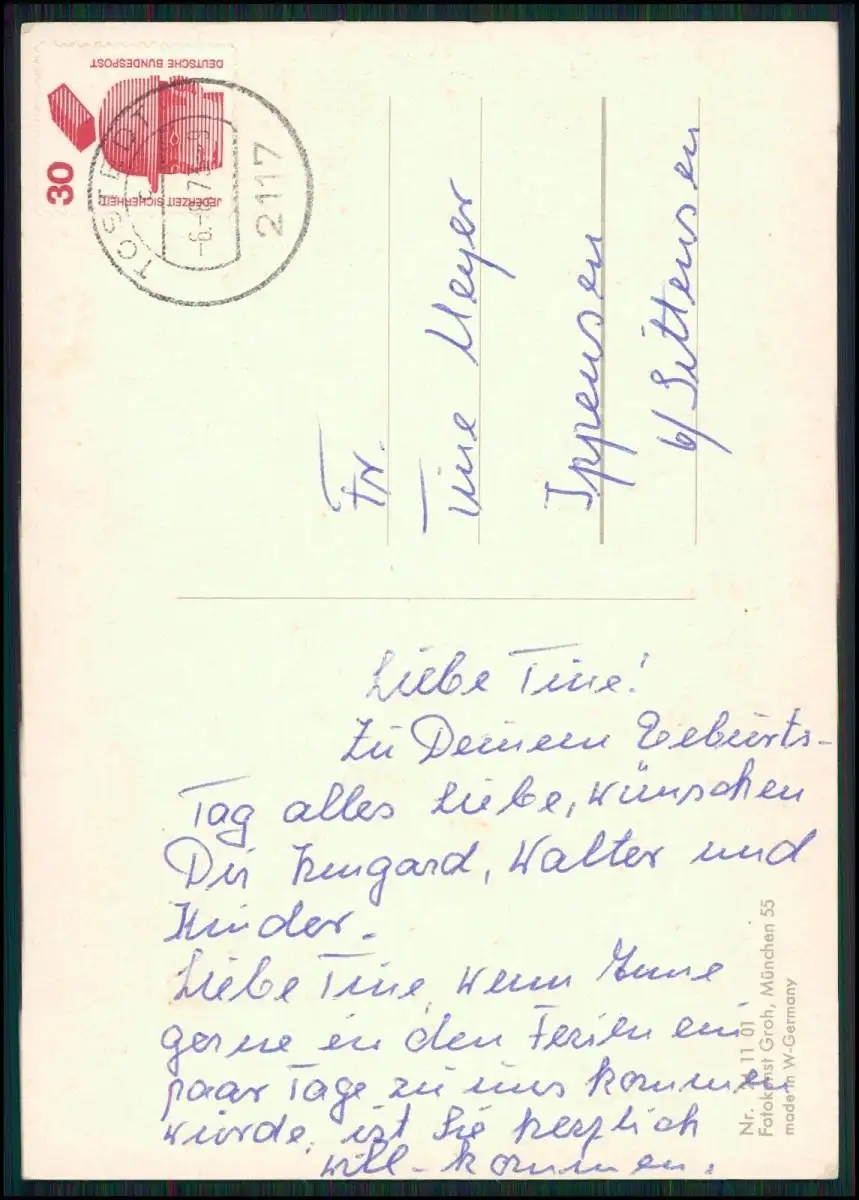 DEUTSCHE BUNDESPOST
JEDERZEIT SICHERHEIT
30
TOSTEDT
2117
Fr.
Tine Meyer
Ippensen
b/ Sittensen
Liebe Tine!
Zu Deinem Geburts-
Tag alles Liebe, wünschen
Dir Irmgard, Walter und
Kinder.
Liebe Tine, wenn
gerne in den Ferien ein
paar Tage zu uns kommen
würde, ist Sie herzlich
will-kommen.
Nr. 11 01
Fotokunst Groh, München 55
made in W-Germany